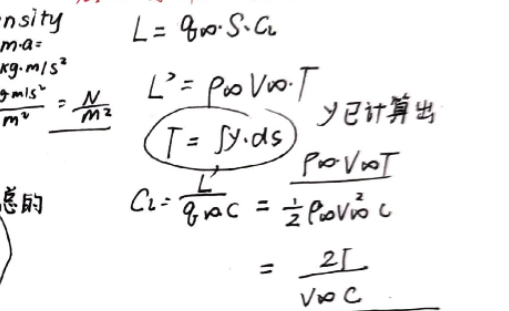 nsity
m·a=
kg·m/s²
g m/s² / m² = N/m²
总的
L = q∞·S·CL
L' = ρ∞V∞·T
T = ∫y·ds
y已计算出
CL = L' / q∞C = ρ∞V∞T / ½ρ∞V∞²C
= 2T / V∞C